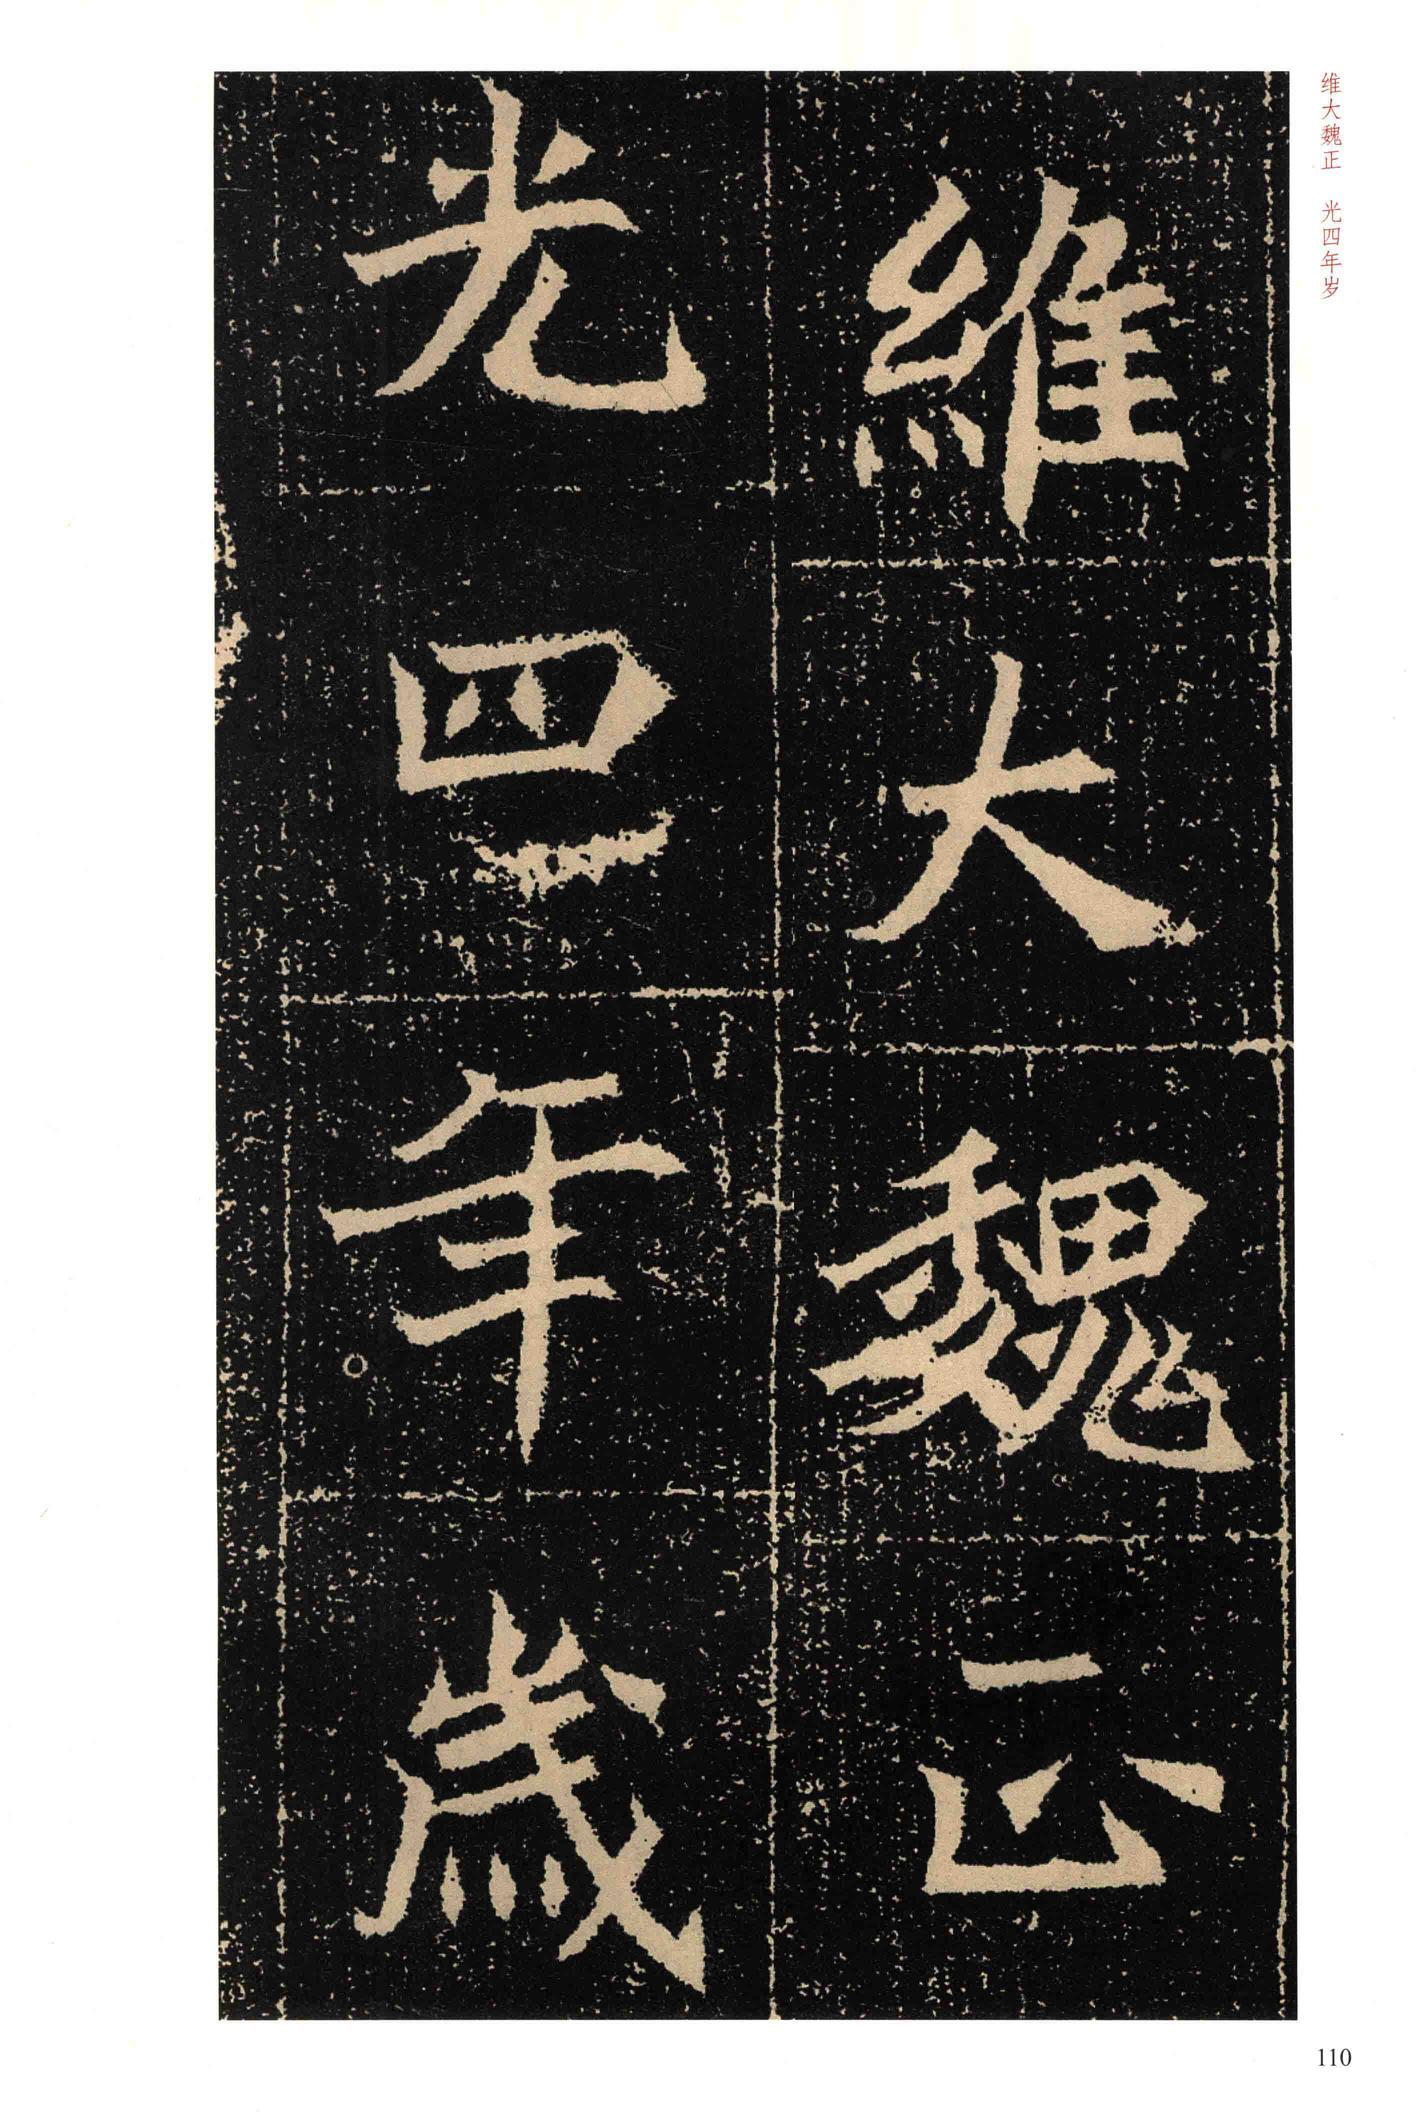 维大魏正 光四年岁
維大魏正
光四年歲
110